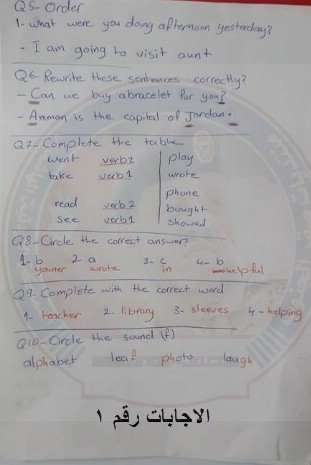 Q5- Order
1- what were you doing afternoon yesterday?
- I am going to visit aunt
Q6- Rewrite these sentences correctly?
- Can we buy a bracelet for you?
- Amman is the capital of Jordan.
Q7- Complete the table
went verb2 play
take verb1 wrote
phone
read verb2 bought
see verb1 showed
Q8- Circle the correct answer?
1- b 2- a 3- c 4- b
wrote in helpful
Q9- Complete with the correct word
1- teacher 2- library 3- sleeves 4- helping
Q10- Circle the sound (f)
alphabet leaf photo laugh
الاجابات رقم ١